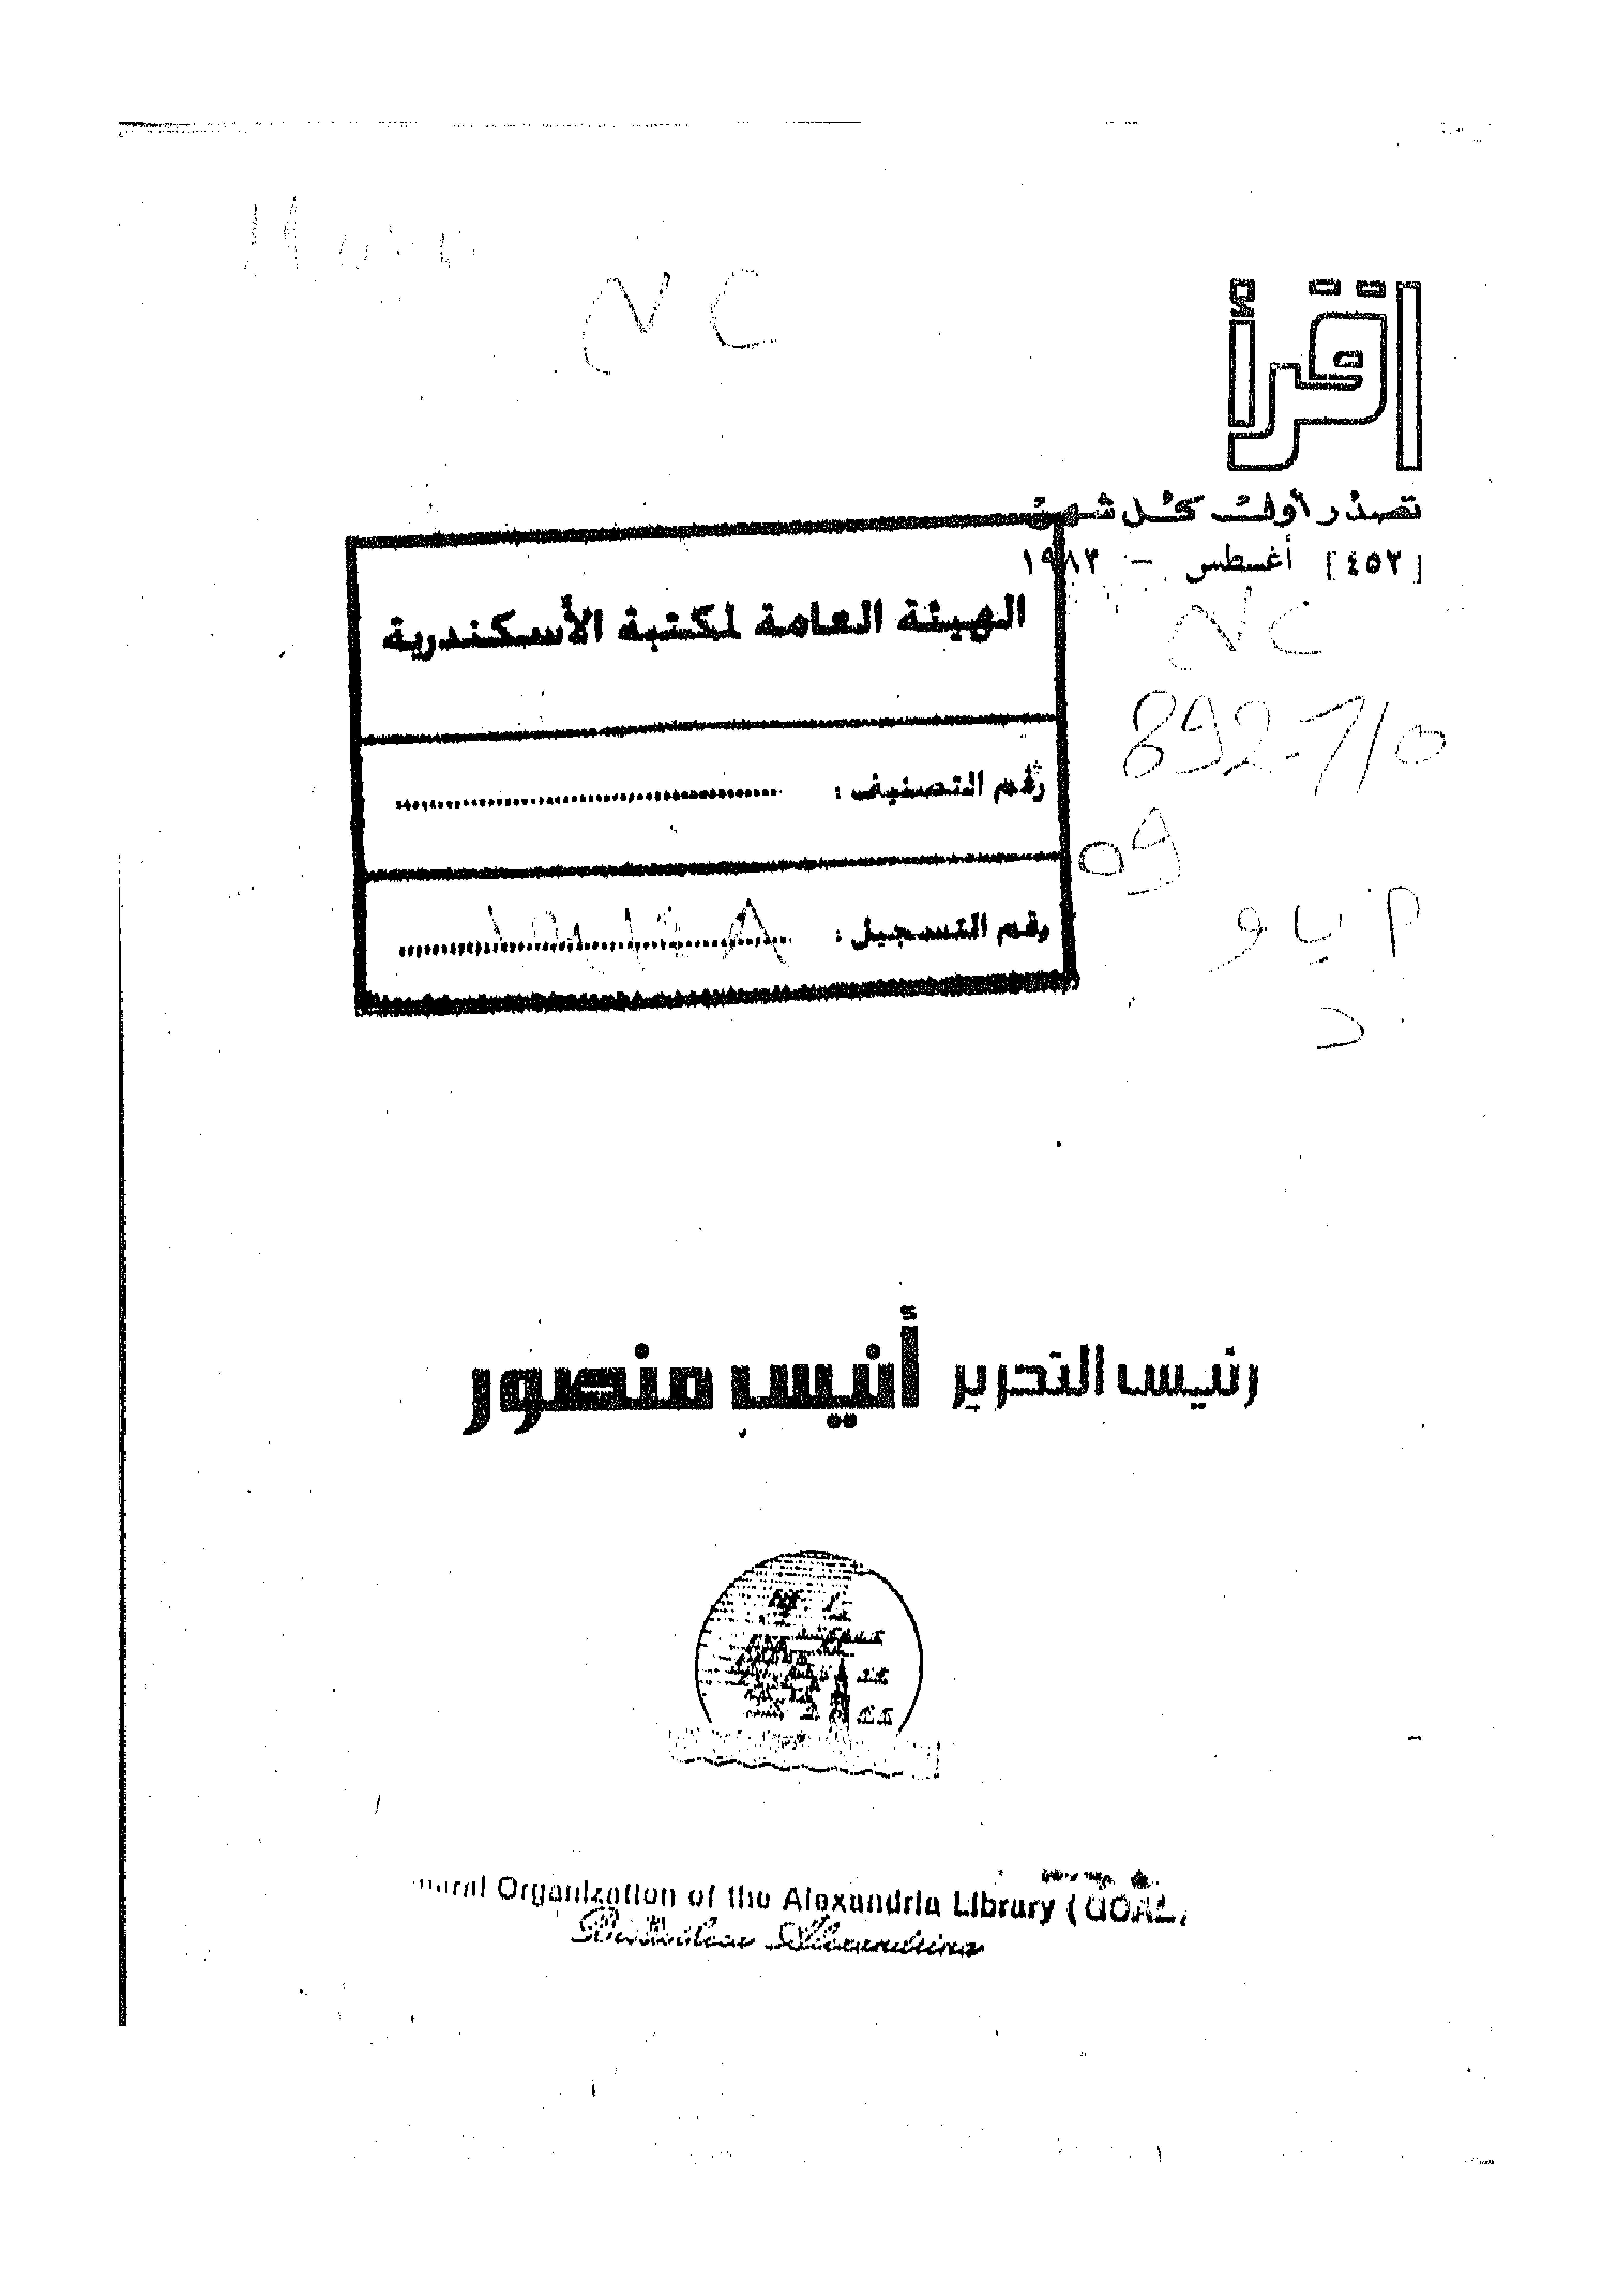 NC
اقرأ
تصدر أول كل شهر
[٤٥٢] أغسطس - ١٩٨٢
NC
892-710
09
الهيئة العامة لمكتبة الأسكندرية
رقم التصنيف :
رقم التسجيل :
رئيس التحرير أنيس منصور
Organization of the Alexandria Library (GOAL)
Bibliotheca Alexandrina